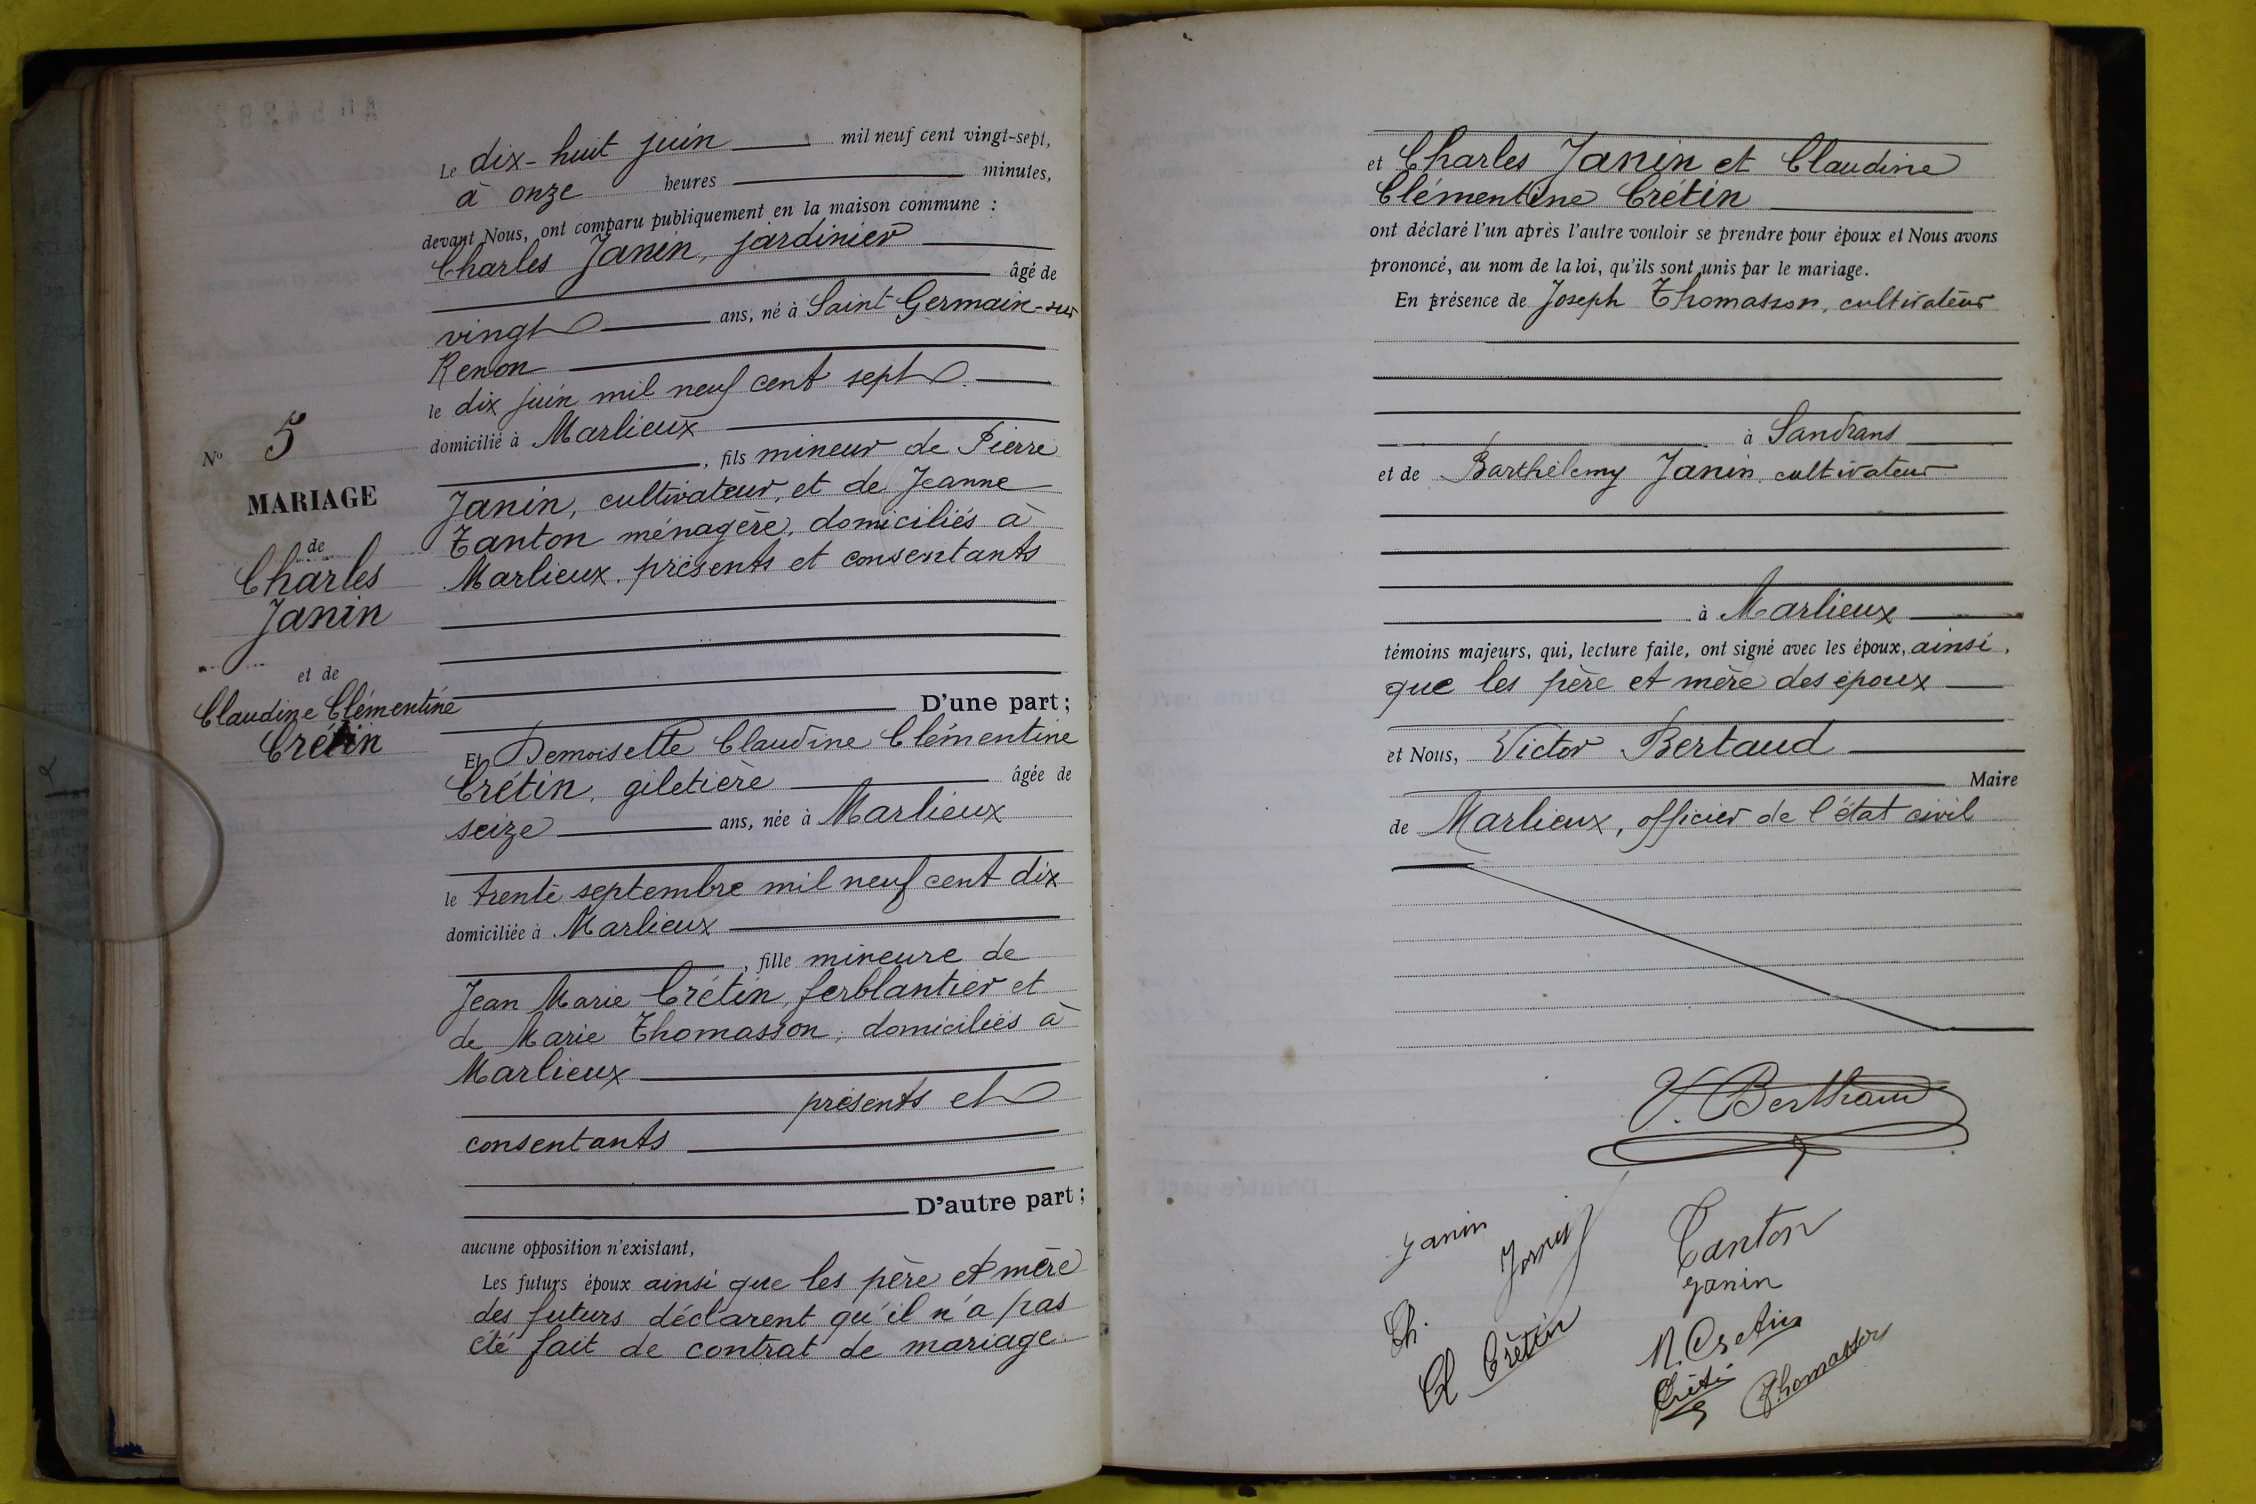 Le dix-huit juin mil neuf cent vingt-sept,
à onze heures minutes,
devant Nous, ont comparu publiquement en la maison commune :
Charles Janin, jardinier
âgé de
vingt ans, né à Saint-Germain-sur
Renon
le dix juin mil neuf cent sept
domicilié à Marlieux
, fils mineur de Pierre
Janin, cultivateur, et de Jeanne
Tanton ménagère, domiciliés à
Marlieux, présents et consentants
D'une part ;
Et Demoiselle Claudine Clémentine
Crétin, giletière âgée de
seize ans, née à Marlieux
le trente septembre mil neuf cent dix
domiciliée à Marlieux
, fille mineure de
Jean Marie Crétin, ferblantier et
de Marie Thomasson, domiciliés à
Marlieux
présents et
consentants
D'autre part ;
aucune opposition n'existant,
Les futurs époux ainsi que les père et mère
des futurs déclarent qu'il n'a pas
été fait de contrat de mariage.
No 5
MARIAGE
de
Charles
Janin
et de
Claudine Clémentine
Crétin
et Charles Janin et Claudine
Clémentine Crétin
ont déclaré l'un après l'autre vouloir se prendre pour époux et Nous avons
prononcé, au nom de la loi, qu'ils sont unis par le mariage.
En présence de Joseph Thomasson, cultivateur
à Sandrans
et de Barthélemy Janin, cultivateur
à Marlieux
témoins majeurs, qui, lecture faite, ont signé avec les époux, ainsi
que les père et mère des époux
et Nous, Victor Bertaud
Maire
de Marlieux, officier de l'état civil
V. Berthaud
Janin
Tanton
Janin
Ch.
Cl Crétin
M. Cretin
Crétin
Thomasson